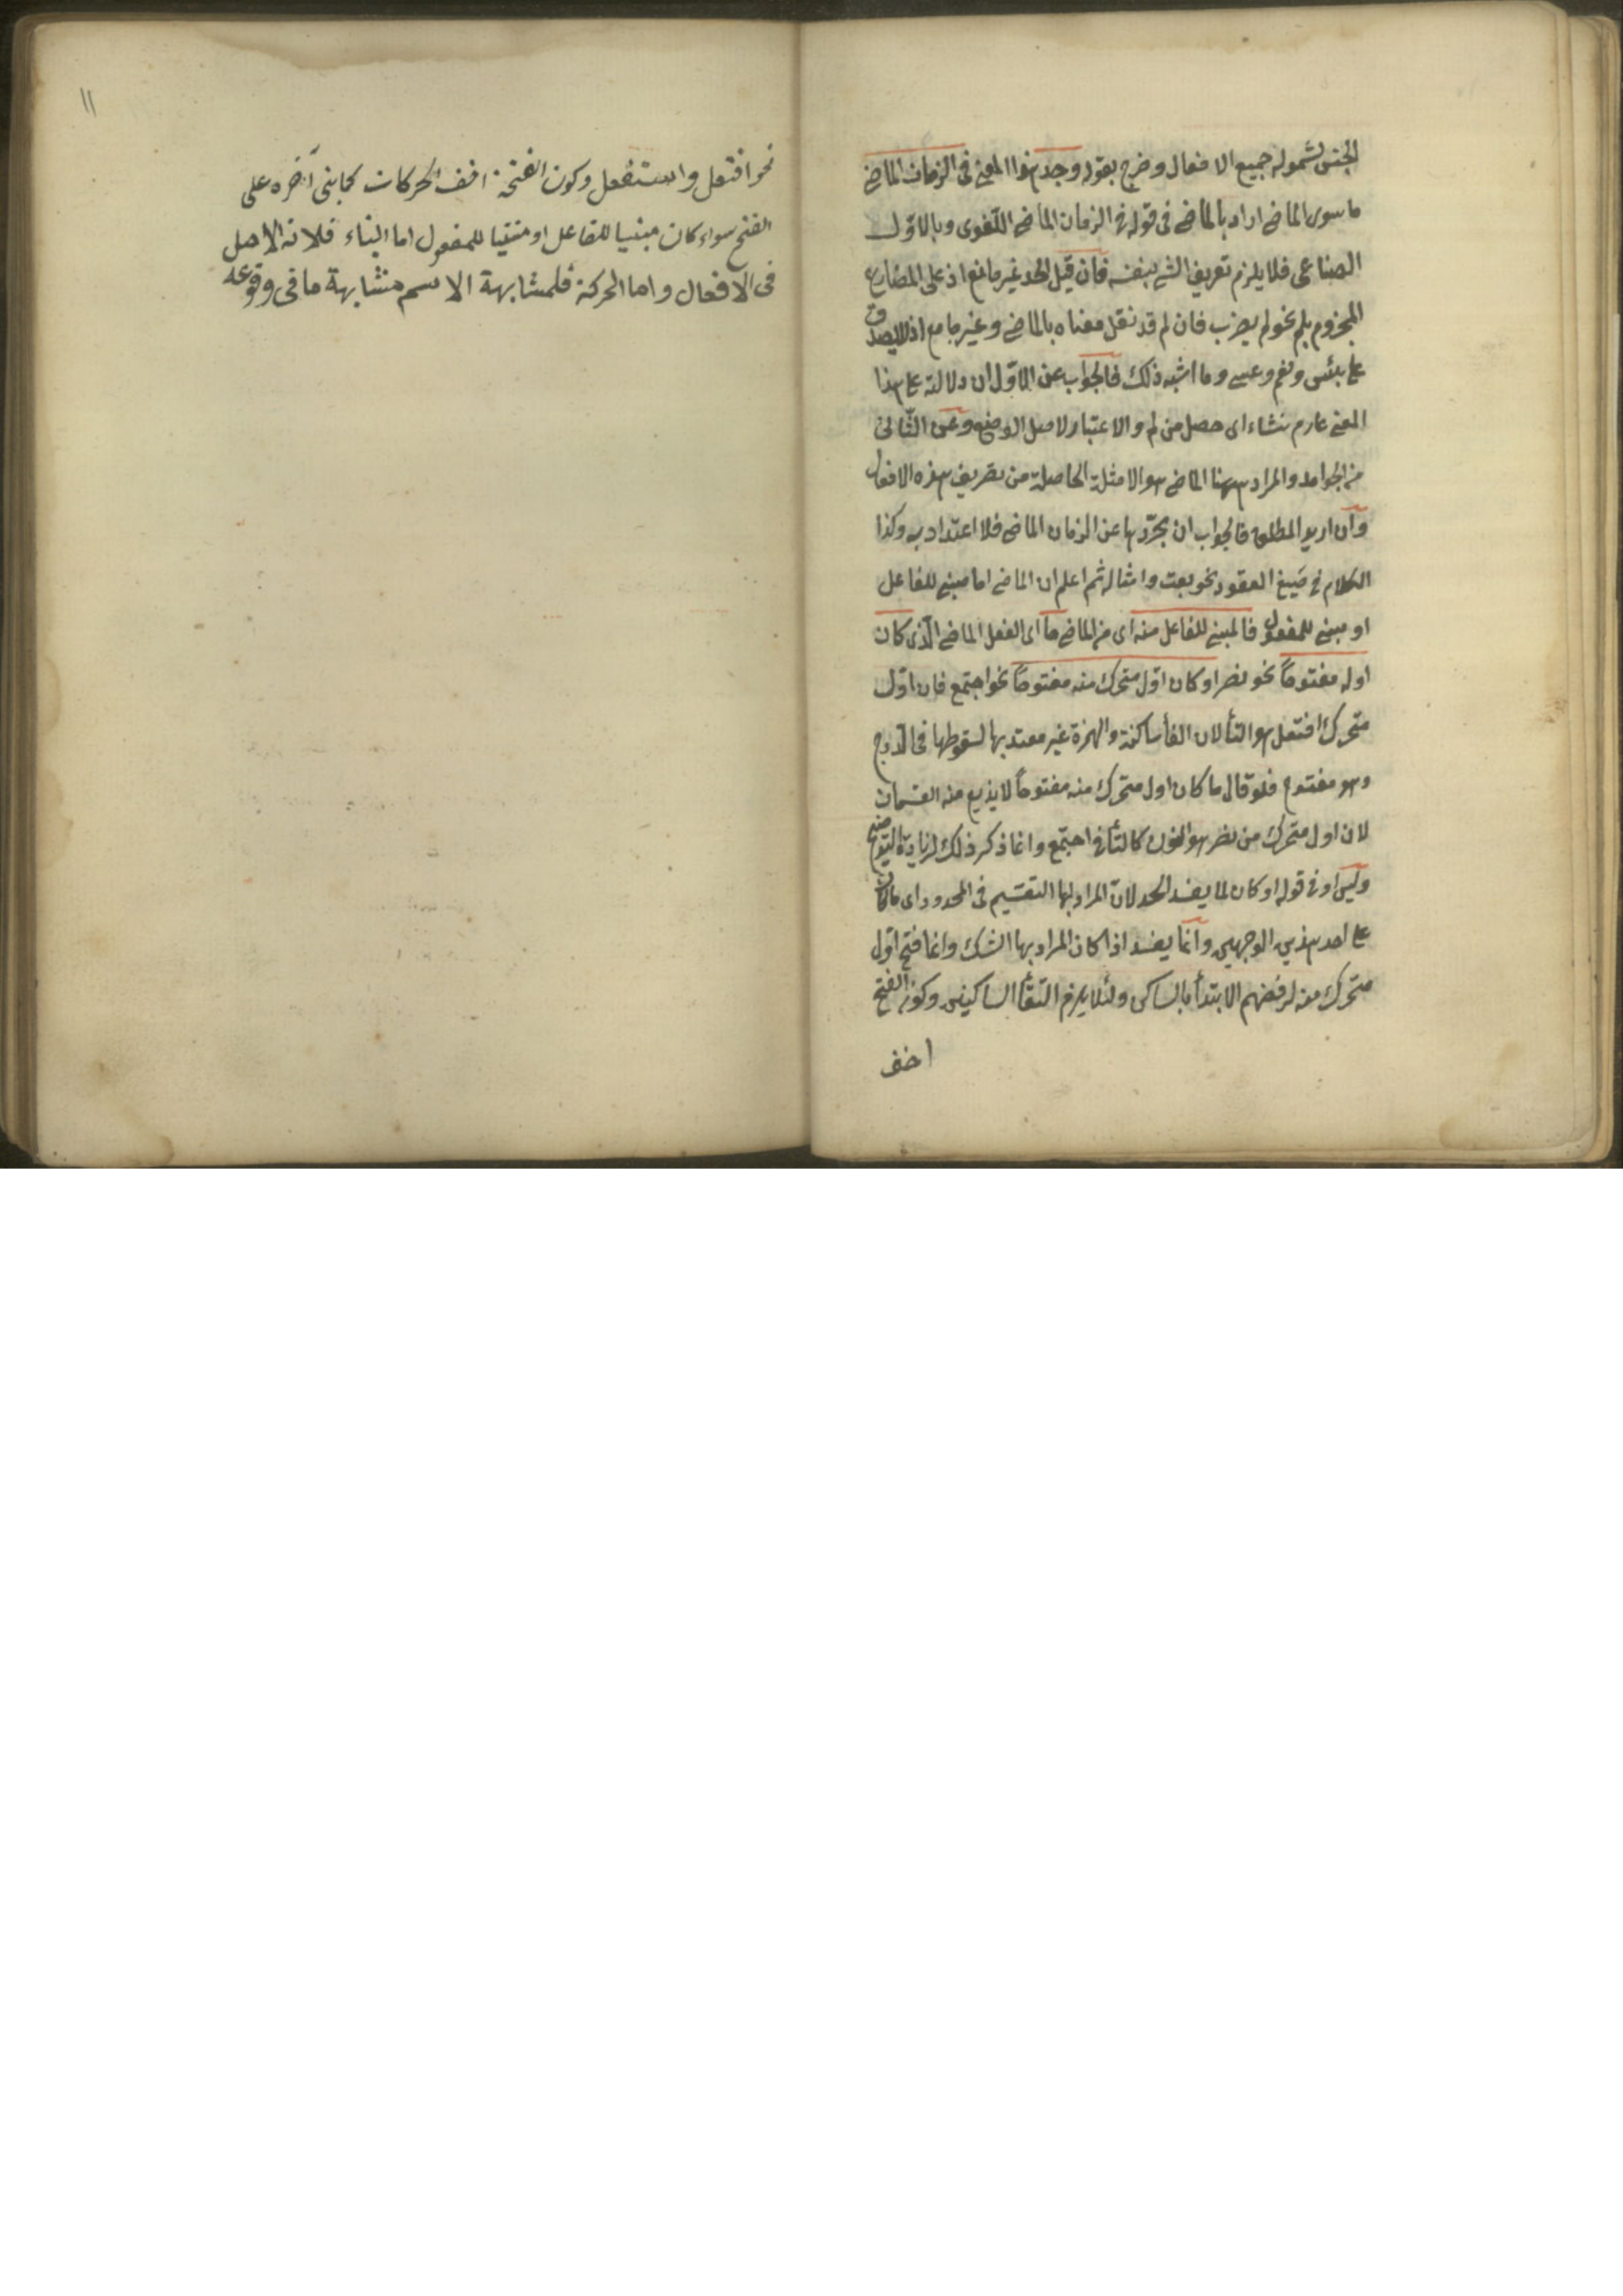 الجنس لشموله جميع الافعال وخرج بقوله وجد هذا المعنى فى الزمان الماضى
ما سوى الماضى اراد بالماضى فى قوله فى الزمان الماضى اللغوى وبالاول
الصناعى فلا يلزم تعريف الشئ بنفسه فان قيل الحد غير مانع اذ على المضارع
المجزوم بلم نحو لم يضرب فان لم قد نقل معناه بالماضى وغير جامع اذ لا يصدق
على بئس ونعم وعسى وما اشبه ذلك فالجواب عن الاول ان دلالته على هذا
المعنى عارم نشاء اى حصل من لم والاعتبار لاصل الوضع وعن الثانى
من الجوامد والمراد ههنا الماضى هو الامثلة الحاصلة من تصريف هذه الافعال
وان اريد المطلق فالجواب ان تجردها عن الزمان الماضى فلا اعتداد به وكذا
الكلام فى صيغ العقود نحو بعت وامثاله ثم اعلم ان الماضى اما مبنى للفاعل
او مبنى للمفعول فالمبنى للفاعل منه اى من الماضى ما اى الفعل الماضى الذى كان
اوله مفتوحاً نحو نصر او كان اول متحرك منه مفتوحاً نحو اجتمع فان اول
متحرك افتعل هو التأ لان الفأ ساكنة والهمزة غير معتد بها لسقوطها فى الدرج
وهو مفتوح فلو قال ما كان اول متحرك منه مفتوحاً لا يندرج منه القسمان
لان اول متحرك من نصر هو النون كالتأ فى اجتمع وانما ذكر ذلك لزيادة التوضيح
وليس او فى قوله او كان لما يفسد الحد لان المراد بها التقسيم فى المحدود اى ما كان
على احد هذين الوجهين وانما يفسد اذا كان المراد بها الشك وانما فتح اول
متحرك منه لرفضهم الابتدأ بالساكن ولئلا يلزم التقأ الساكنين وكون الفتح
اخف
١١
نحو افتعل واستفعل وكون الفتحة اخف الحركات كما بنى آخره على
الفتح سواء كان مبنيا للفاعل او مبنيا للمفعول اما البناء فلانه الاصل
فى الافعال واما الحركة فلمشابهة الاسم مشابهة ما فى وقوعه